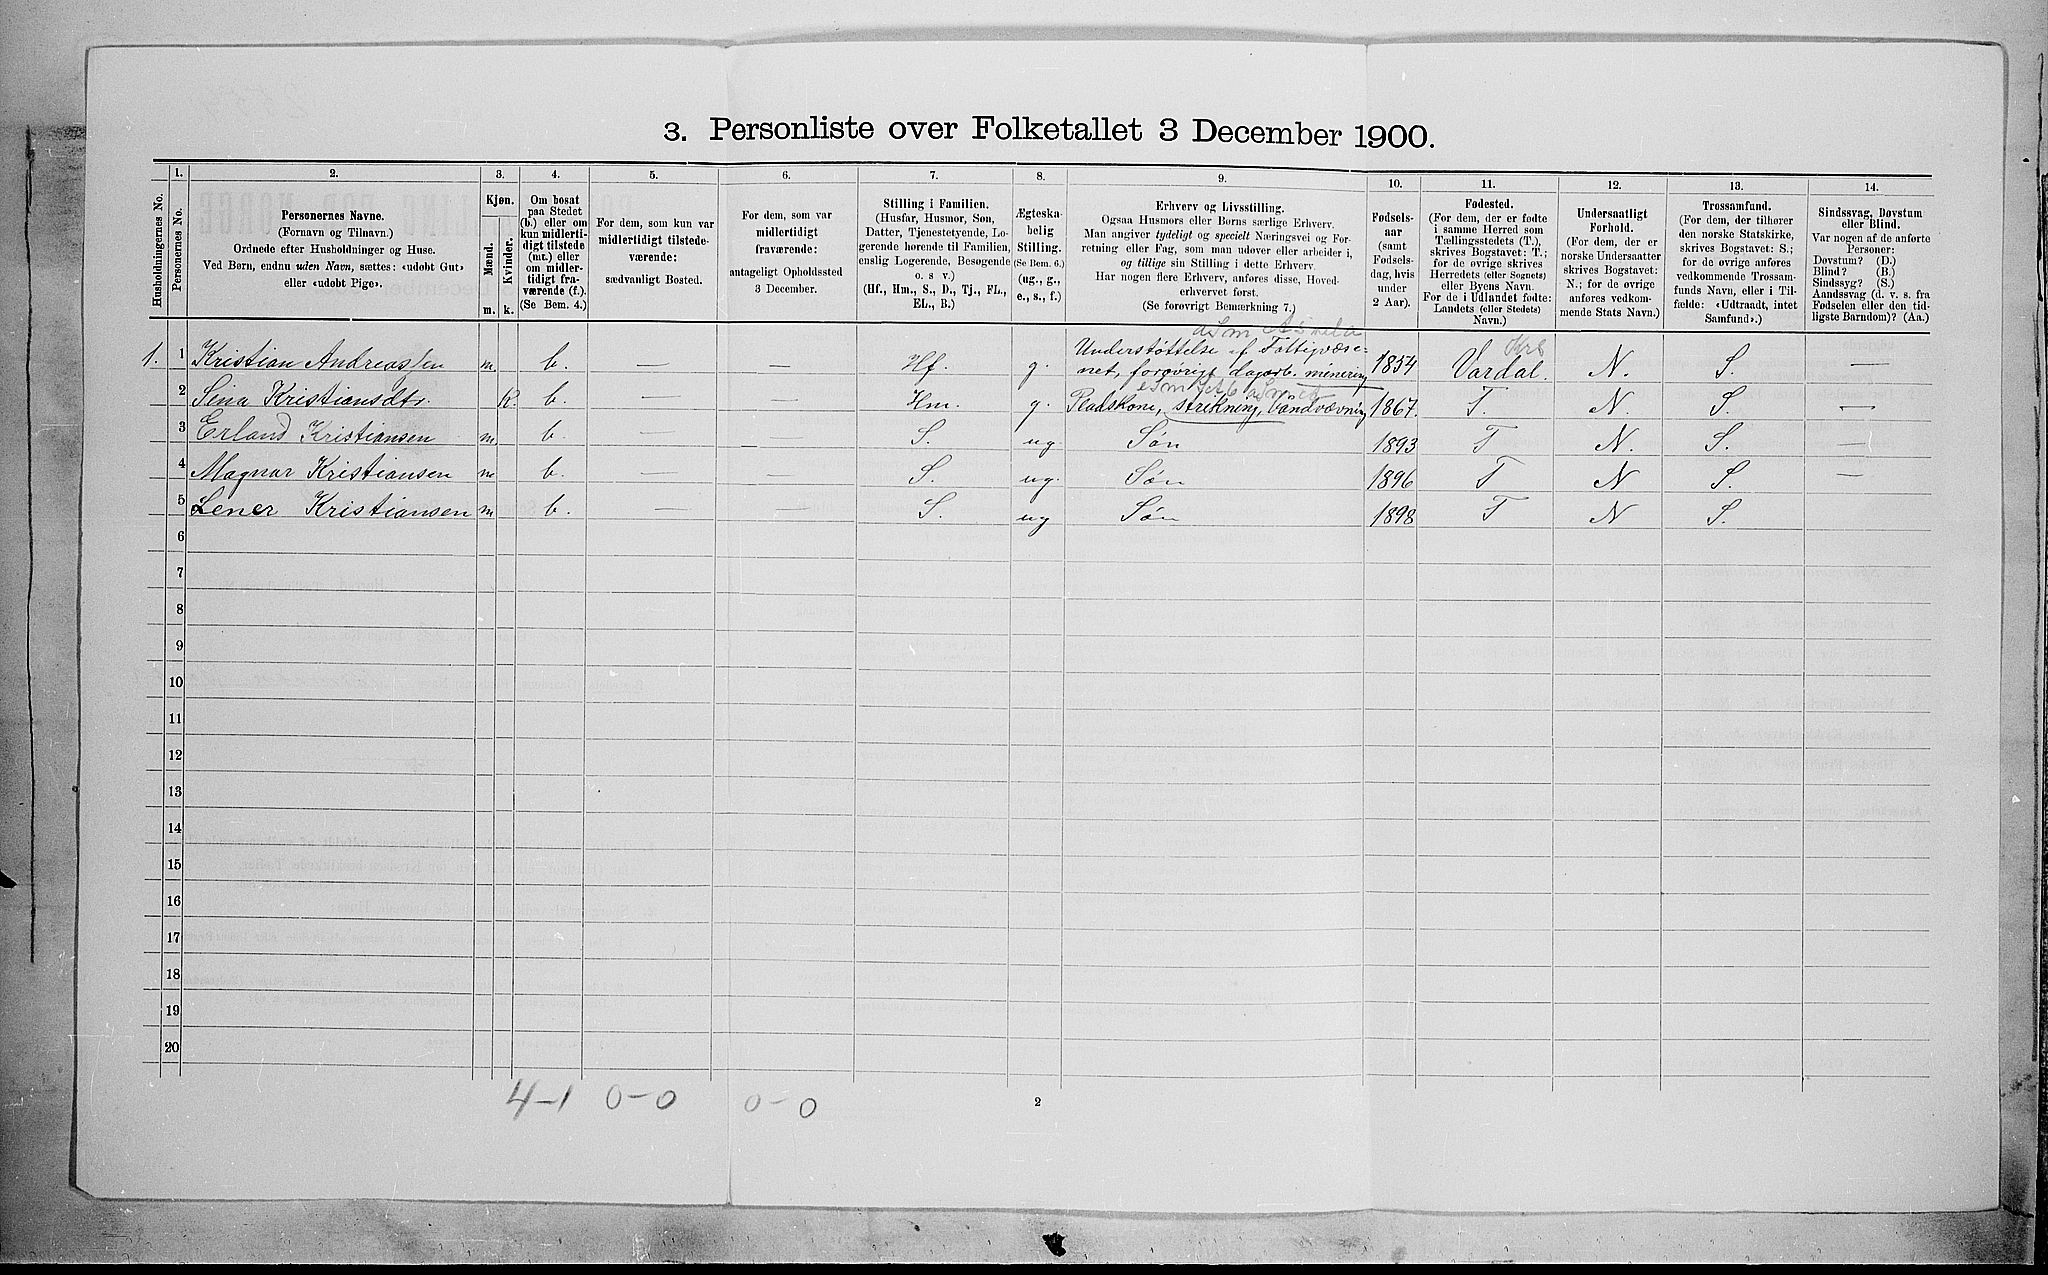 3. Personliste over Folketallet 3 December 1900.
Husholdningernes No.
1.
Personernes No.
2.
Personernes Navne.
(Fornavn og Tilnavn.)
Ordnede efter Husholdninger og Huse.
Ved Børn, endnu uden Navn, sættes: «udøbt Gut»
eller «udøbt Pige».
3.
Kjøn.
Mænd.
Kvinder.
m.
k.
4.
Om bosat
paa Stedet
(b.) eller om
kun midlerti-
digt tilstede
(mt.) eller
om midler-
tidigt fra-
værende (f.).
(Se Bem. 4.)
5.
For dem, som kun var
midlertidigt tilstede-
værende:
sædvanligt Bosted.
6.
For dem, som var
midlertidigt
fraværende:
antageligt Opholdssted
3 December.
7.
Stilling i Familien.
(Husfar, Husmor, Søn,
Datter, Tjenestetyende, Lo-
gerende hørende til Familien,
enslig Logerende, Besøgende
o. s v.)
(Hf., Hm., S., D., Tj., FL.,
EL., B.)
8.
Ægteska-
belig
Stilling.
(Se Bem. 6.)
(ug., g.,
e., s., f.)
9.
Erhverv og Livsstilling.
Ogsaa Husmors eller Børns særlige Erhverv.
Man angiver tydeligt og specielt Næringsvei og For-
retning eller Fag, som man udøver eller arbeider i,
og tillige sin Stilling i dette Erhverv.
Har nogen flere Erhverv, anføres disse, Hoved-
erhvervet først.
(Se forøvrigt Bemærkning 7.)
10.
Fødsels-
aar
(samt
Fødsels-
dag, hvis
under
2 Aar).
11.
Fødested.
(For dem, der er fødte
i samme Herred som
Tællingsstedets (T.),
skrives Bogstavet: T.;
for de øvrige skrives
Herredets (eller Sognets)
eller Byens Navn.
For de i Udlandet fødte:
Landets (eller Stedets)
Navn.)
12.
Undersaatligt
Forhold.
(For dem, der er
norske Undersaatter
skrives Bogstavet:
N.; for de øvrige
anføres vedkom-
mende Stats Navn.)
13.
Trossamfund.
(For dem, der tilhører
den norske Statskirke,
skrives Bogstavet: S.;
for de øvrige anføres
vedkommende Trossam-
funds Navn, eller i Til-
fælde: «Udtraadt, intet
Samfund».)
14.
Sindssvag, Døvstum
eller Blind.
Var nogen af de anførte
Personer:
Døvstum? (D.)
Blind? (B.)
Sindssyg? (S.)
Aandssvag (d. v. s. fra
Fødselen eller den tid-
ligste Barndom)? (Aa.)
1. 1 Kristian Andreassen m. b. — — Hf. g. Understøttelse af Fattigvæse-
net, forøvrigt dagarb. minering 1854 Vardal. N. S. —
2 Sina Kristiansdtr. k. b. — — Hm. g. Pladskone, strikning, baandvævning 1867. T. N. S. —
3 Erland Kristiansen m. b. — — S. ug. Søn 1893 T N. S. —
4 Magnar Kristiansen m b. — — S. ug. Søn 1896 T N S. —
5 Lener Kristiansen m b. — — S. ug Søn 1898 T N S.
6
7
8
9
10
11
12
13
14
15
16
17
18
19
20
4-1 0-0 0-0
2